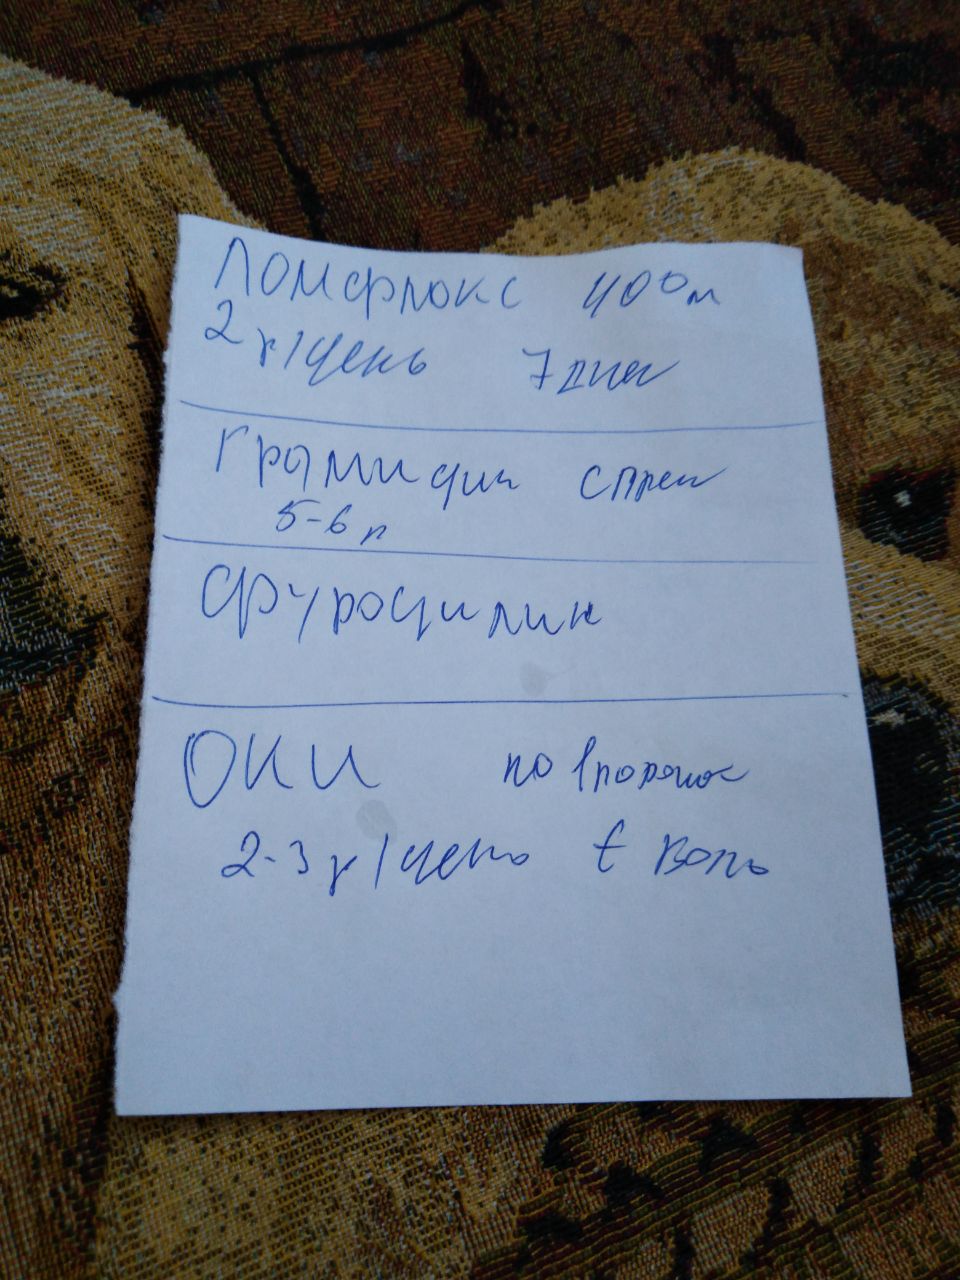 Ломфлокс 400м
2 р/день 7 дней
Грамидин спрей
5-6 р
Фурацилин
ОКИ по 1 порошок
2-3 р/день t боль